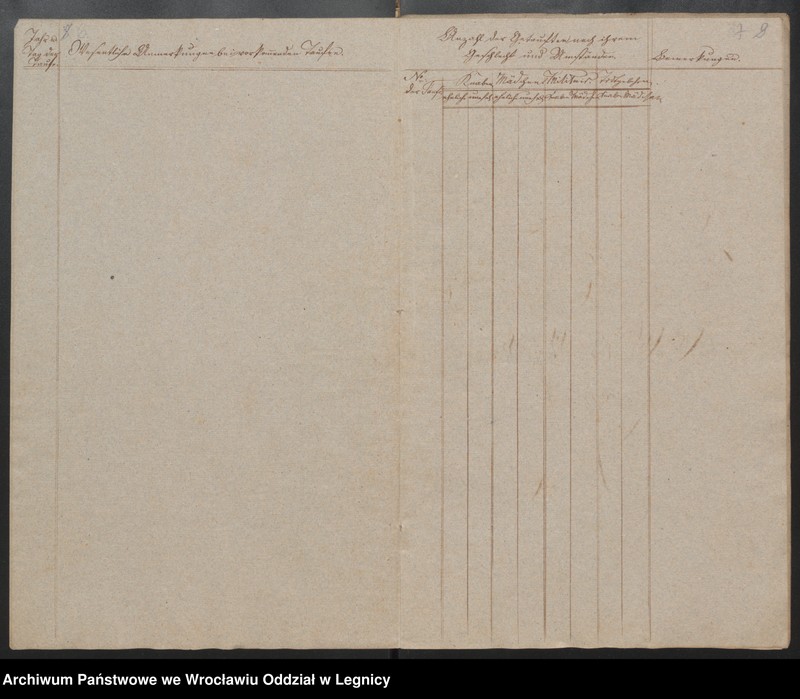 Jahr u.
Tag der
Taufe.
Wesentliche Anmerkungen bei vorkommenden Taufen.
Anzahl der Getauften nach ihrem
Geschlecht und Umständen.
Bemerkungen.
7 8
No.
der Taufe
Knaben Mädchen Militair
ehelich unehel. ehelich unehel. Knabe Mädch. Knabe Mädchen
Archiwum Państwowe we Wrocławiu Oddział w Legnicy